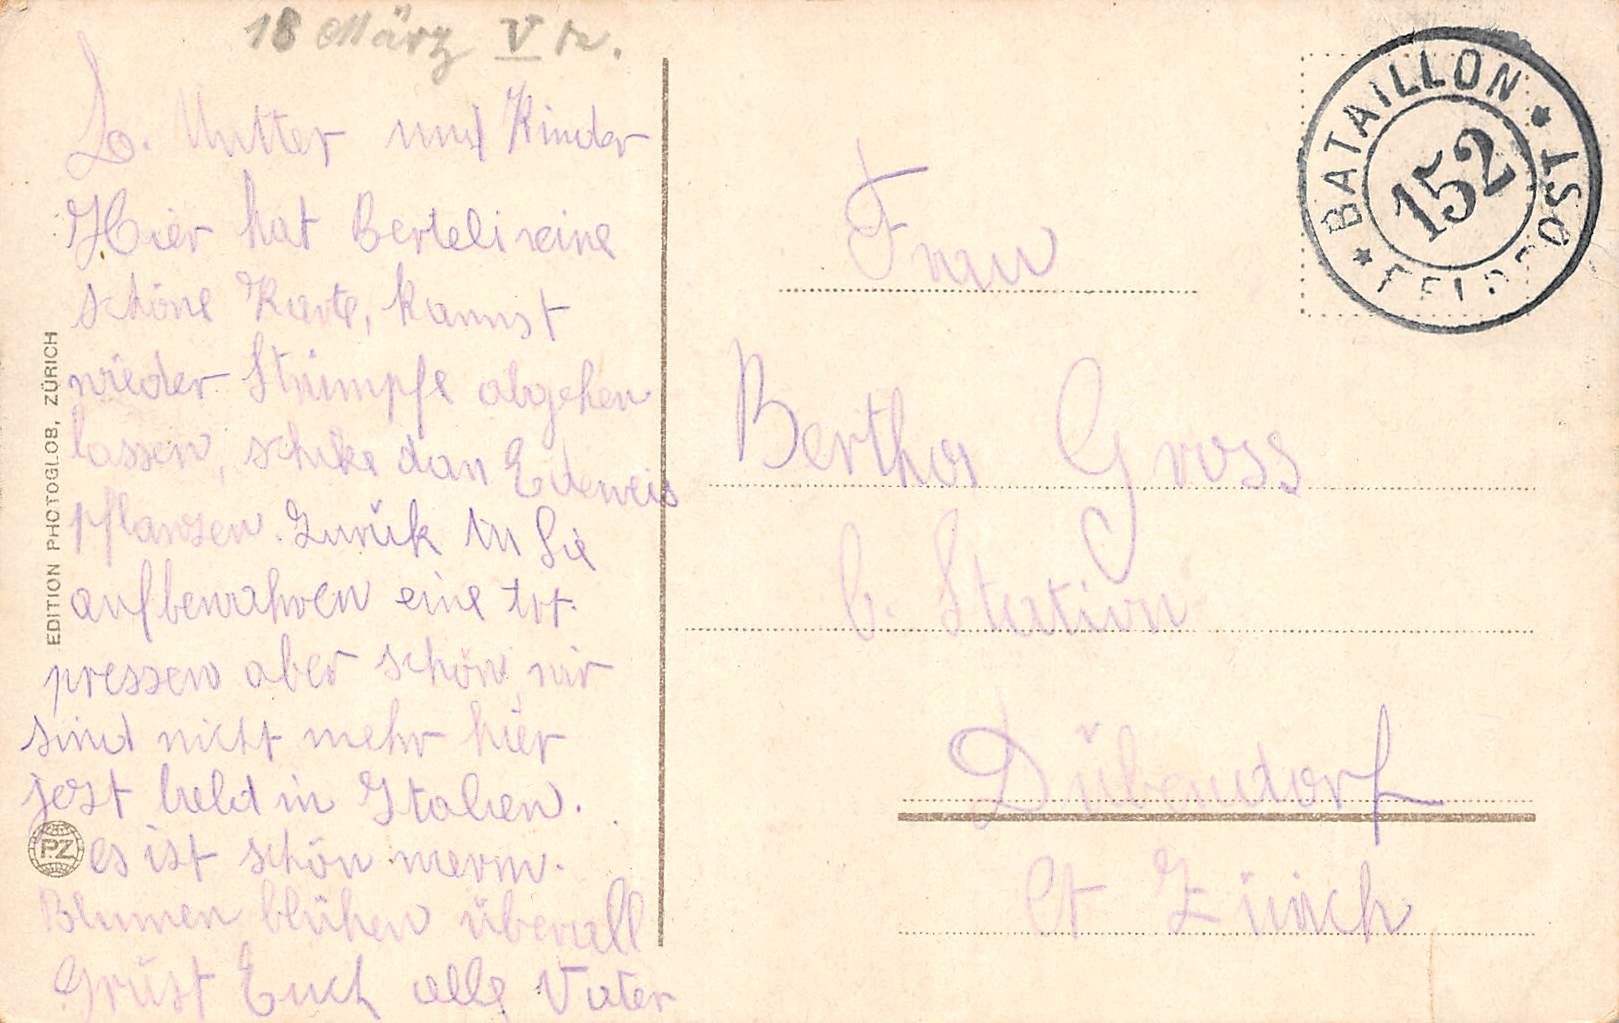 18 März V
L. Mutter und Kinder
Hier hat Berteli eine
schöne Karte, kannst
wieder Strümpfe abgehen
lassen, schike dan Edeweis
pflanzen. Zurük in Sie
aufbewahren eine tot.
pressen aber schön, wir
sind nicht mehr hier
jest bald in Italien.
es ist schön warm.
Blumen blühen überall
Grüst Euch alle Vater
EDITION PHOTOGLOB, ZÜRICH
PZ
BATAILLON
152
FELDPOST
Frau
Bertha Gross
b. Station
Dübendorf
Ct Zürich